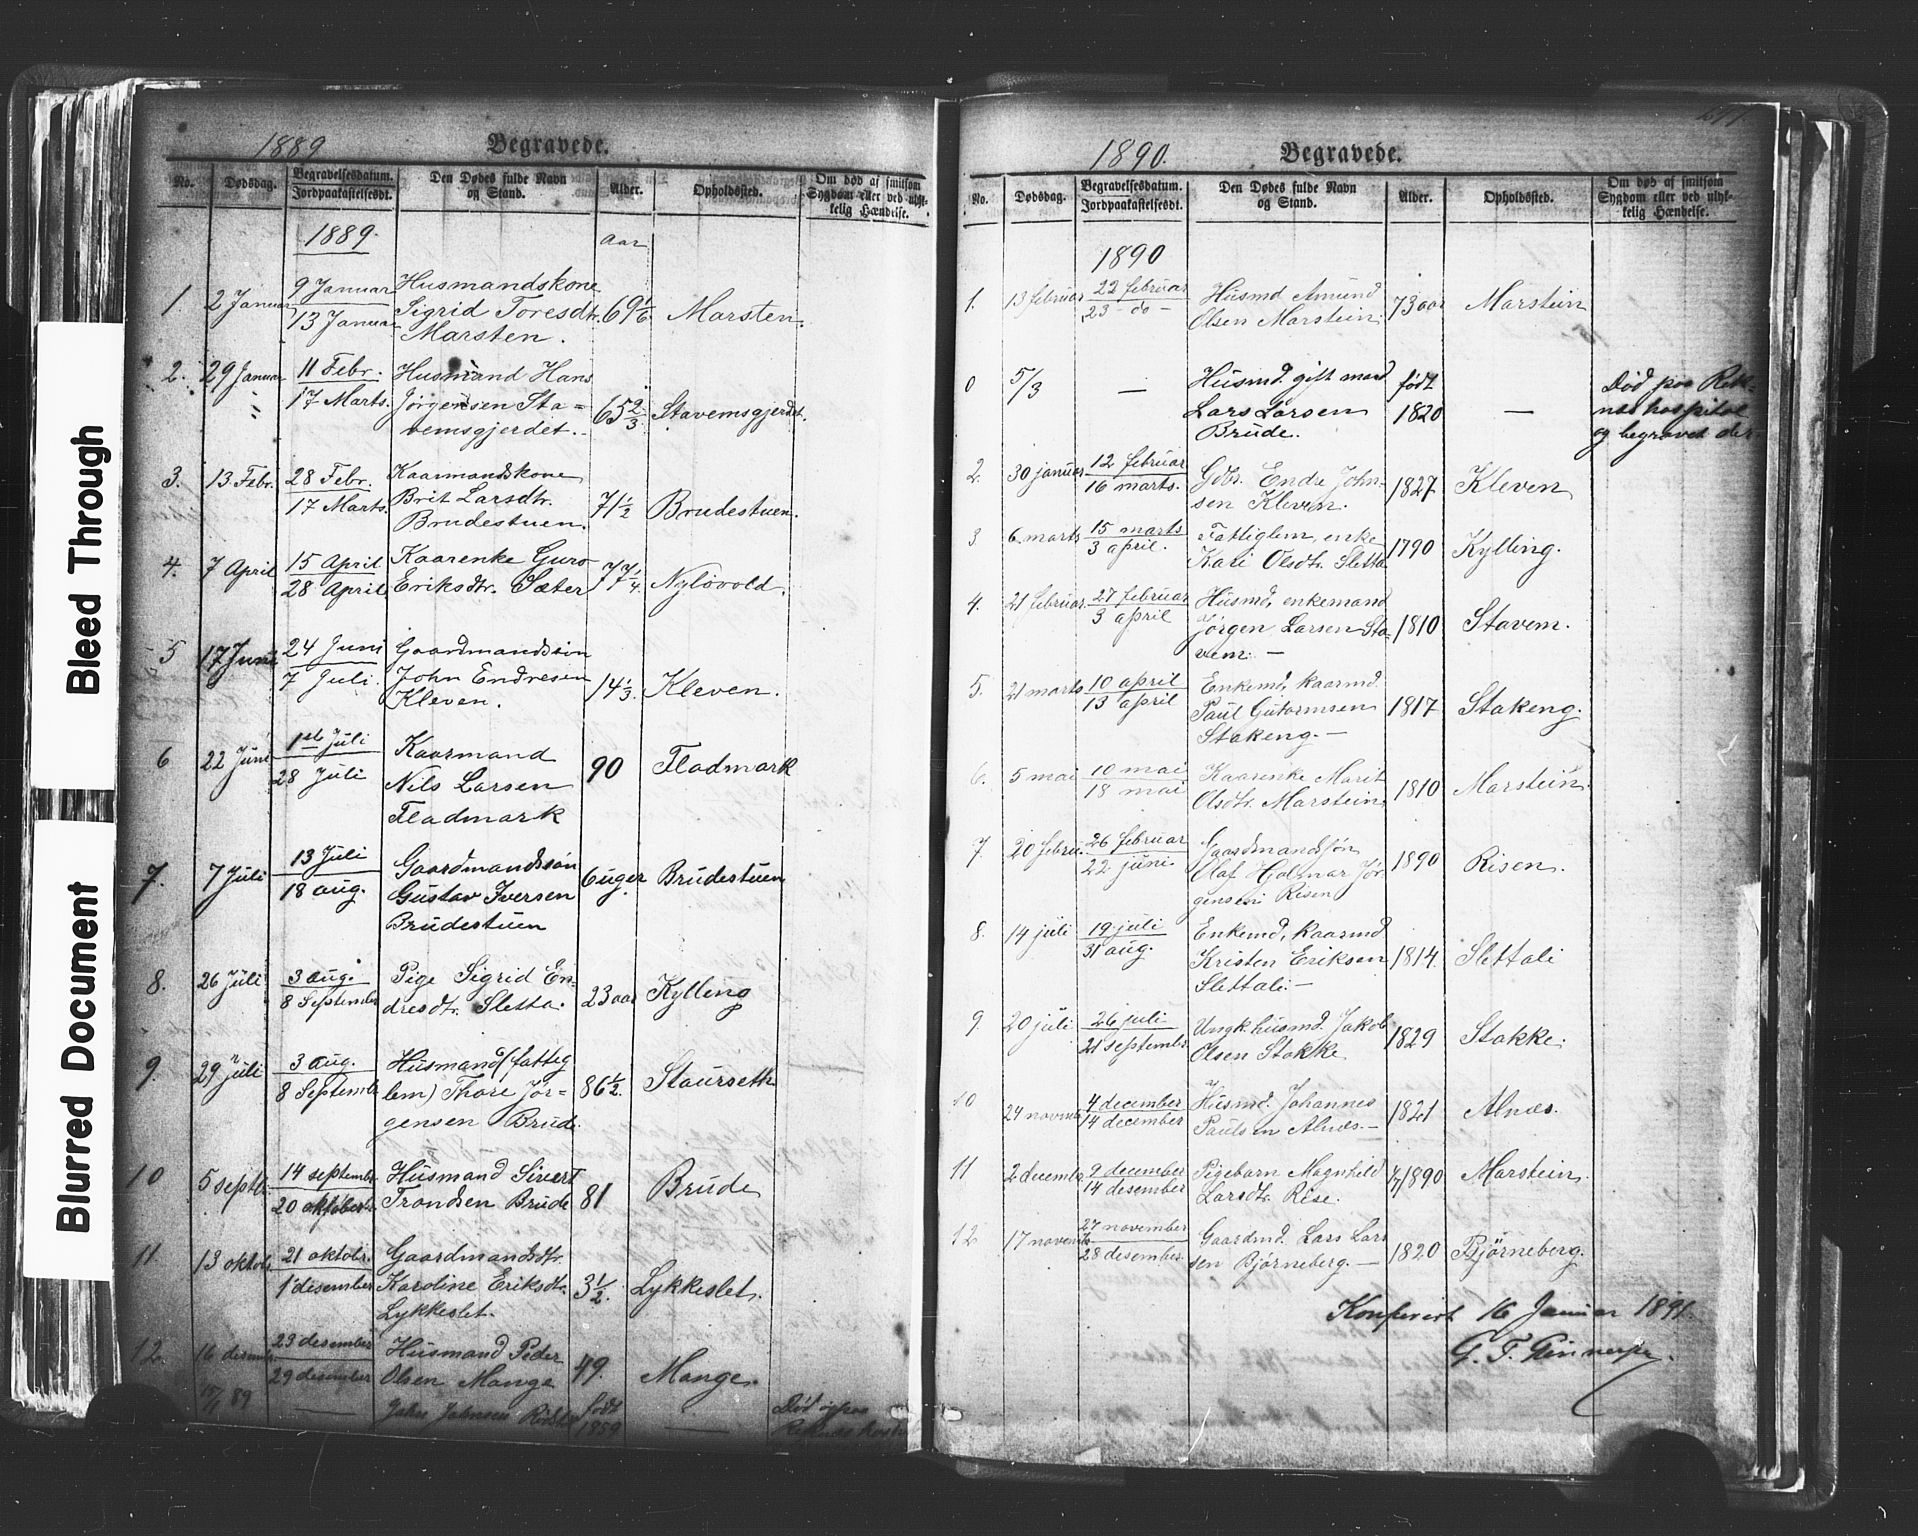 Bleed Through
Blurred Document
1889 Begravede.
No. Dødsdag. Begravelsesdatum. Jordpaakastelsesdt. Den Dødes fulde Navn og Stand. Alder. Opholdssted. Om død af smitsom Sygdom eller ved ulykkelig Hændelse.
1889. aar
1. 2 Januar 9 Januar Husmandskone
13 Januar Sigrid Toresdtr. 69 1/6 Marsten.
Marsten.
2. 29 Januar 11 Febr. Husmand Hans
17 Marts. Jørgensen Sta- 65 2/3 Stavemsgjerdet.
vemsgjerdet.
3. 13 Febr. 28 Febr. Kaarmandskone
17 Marts. Brit Larsdtr. 71 1/2 Brudestuen.
Brudestuen.
4. 7 April 15 April Kaarenke Guro
28 April Eriksdtr. Sæter 77 1/4. Nyløvold.
5 17 Juni 24 Juni Gaardmandssøn
7 Juli. John Endresen 14 1/3. Kleven.
Kleven.
6 22 Juni 1ste Juli Kaarmand
28 Juli Nils Larsen 90 Fladmark
Fladmark
7. 7 Juli 13 Juli Gaardmandssøn
18 aug. Gustav Iversen 6 uger Brudestuen
Brudestuen
8. 26 Juli 3 aug. Pige Sigrid En-
8 September dresdtr. Sletta. 23 aar Kylling
9. 29 juli 3 aug. Husmand (fattig
8 Septembr lem) Thore Jør- 86 1/2. Staurseth
gensen Brude.
10 5 septbr. 14 septembr Husmand Sivert
20 oktober Trondsen Brude 81 Brude
11. 13 oktobr. 21 oktobr. Gaardmandsdtr.
1 desember Karoline Eriksdtr. 3 1/2. Lykkeslet.
Lykkeslet.
12. 16 desembr. 23 desember Husmand Peder
29 desember Olsen Mange 49. Mange.
89 — John Johnsen født 1859 — Død og paa
Reknes
1890. Begravede.
No. Dødsdag. Begravelsesdatum. Jordpaakastelsesdt. Den Dødes fulde Navn og Stand. Alder. Opholdssted. Om død af smitsom Sygdom eller ved ulykkelig Hændelse.
1890
1. 13 februar 22 februar Husmd Amund
23 - do - Olsen Marstein. 73 aar Marstein
0 5/3 — Husmd. gift mand født Død paa Rek-
Lars Larsen 1820 — nes hospital
Brude. og begravet der
2. 30 januar 12 februar Gbr. Endre John-
16 marts. sen Kleven. 1827. Kleven
3 6 marts 15 marts Fattiglem, enke
3 april. Kari Olsdtr. Sletta 1790 Kylling.
4. 21 februar. 27 februar Husmd, enkemand
3 april Jørgen Larsen Sta- 1810 Stavem.
vem. —
5. 21 marts 10 april Enkemd, kaarmd.
13 april Paul Gutormsen 1817 Stakeng.
Stakeng. —
6. 5 mai 10 mai Kaarenke Marit
18 mai Olsdtr. Marstein 1810 Marstein.
7. 20 febru. 26 februar Gaardmandssøn
22 juni. Olaf Hjalmar Jør- 1890 Risen.
gensen Risen
8. 14 juli 19 juli Enkemd, kaarmd
31 aug. Kristen Eriksen 1814. Slettali
Slettali. —
9. 20 juli 26 juli Ungk. husmd. Jakob
21 septembr Olsen Stokke 1829 Stokke.
10 24 novembr 4 december Husmd. Johannes
14 december Paulsen Alnæs. — 1821 Alnæs.
11 2 decembr 9 december Pigebarn Magnhild
14 desember Larsdtr. Rise. 4/7 1890 Marstein.
12 17 novembr. 27 november Gaardmd. Lars Lar-
28 desember. sen Bjørneberg. — 1820 Bjørneberg.
Konfereret 16 Januar 1891.